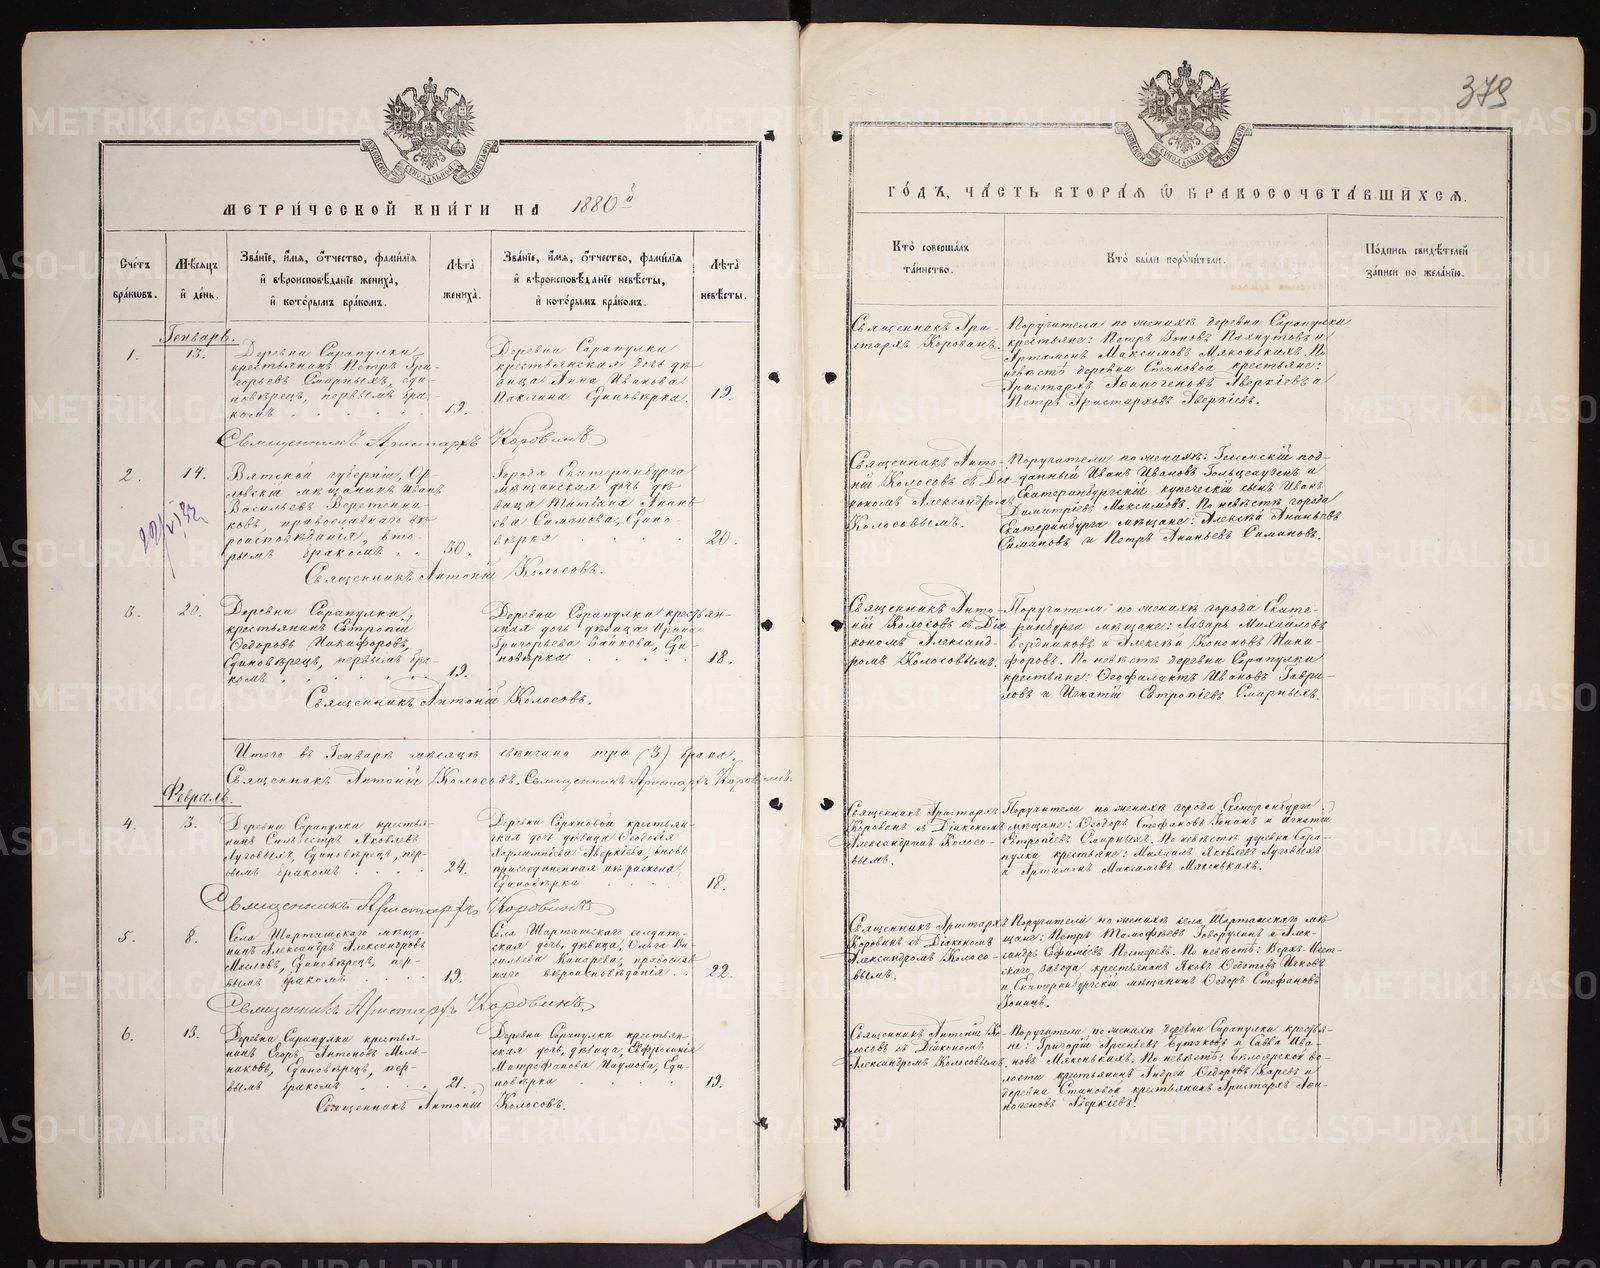 379
МЕТРИ́ЧЕСКОЙ КНИ́ГИ НА 1880й
ГО́ДЪ, ЧА́СТЬ ВТОРА́Я Ѡ БРАКОСОЧЕТА́ВШИХСЯ.
Сче́тъ бра́кѡвъ.
Мѣ́сяцъ и́ де́нь.
Зва́нїе, и́мя, о́тчество, фами́лїя и́ вѣроисповѣ́данїе жениха̀, и́ кото́рымъ бра́комъ.
Лѣ́та жениха̀.
Зва́нїе, и́мя, о́тчество, фами́лїя и́ вѣроисповѣ́данїе невѣ́сты, и́ кото́рымъ бра́комъ.
Лѣ́та невѣ́сты.
Кто̀ соверша́лъ та́инство.
Кто̀ бы́ли пор​учи́тели.
По́дпись свидѣ́телей за́писи по жела́нїю.
Генварь.
1.
13.
Деревни Сарапулки
крестьянинъ Петръ Гри-
горьевъ Смирныхъ, еди-
новѣрецъ, первымъ бра-
комъ
19.
Деревни Сарапулки
крестьянская дочь дѣ-
вица Анна Иванова
Паклина Единовѣрка.
19.
Священникъ Ари-
стархъ Коровинъ.
Поручители по женихѣ деревни Сарапулки
крестьяне: Петръ Іоновъ Пахнутовъ и
Артамонъ Максимовъ Мяконькихъ. По
невѣстѣ деревни Становой крестьяне:
Аристархъ Аѳиногеновъ Аверкіевъ и
Петръ Аристарховъ Аверкіевъ.
Священникъ Аристархъ Коровинъ
2.
14.
Вятской губерніи, Ор-
ловскій мѣщанинъ Иванъ
Васильевъ Веретенни-
ковъ, православнаго вѣ-
роисповѣданія, вто-
рымъ бракомъ
50.
Города Екатеринбурга
мѣщанская дочь дѣ-
вица Татьяна Анань-
ева Симанова, Едино-
вѣрка
20.
Священникъ Анто-
ній Колосовъ съ Діа-
кономъ Александромъ
Колосовымъ.
Поручители по женихѣ:
данный Иванъ Ивановъ Гольцгаузенъ и
Екатеринбургскій купеческій сынъ Иванъ
Димитріевъ Максимовъ. По невѣстѣ города
Екатеринбурга мѣщане: Алексѣй Ананьевъ
Симановъ и Петръ Ананьевъ Симановъ.
Священникъ Антоній Колосовъ.
3.
20.
Деревни Сарапулки,
крестьянинъ Евтропій
Ѳедоровъ Никифоровъ,
Единовѣрецъ, первымъ бра-
комъ
19.
Деревни Сарапулки крестьян-
ская дочь дѣвица Ирина
Григорьева Байкова, Еди-
новѣрка
18.
Священникъ Анто-
ній Колосовъ съ Діа-
кономъ Александ-
ромъ Колосовымъ.
Поручители по женихѣ города Екате-
ринбурга мѣщане: Лазарь Михайловъ
Бердниковъ и Алексѣй Кононовъ Ники-
форовъ. По невѣстѣ деревни Сарапулки
крестьяне: Ѳеофилактъ Ивановъ Гаври-
ловъ и Игнатій Евтропіевъ Смирныхъ.
Священникъ Антоній Колосовъ.
Итого въ Генварѣ мѣсяцѣ вѣнчано три (3) брака.
Священникъ Антоній Колосовъ. Священникъ Аристархъ Коровинъ.
Февраль.
4.
3.
Деревни Сарапулки крестья-
нинъ Сильвестръ Яковлевъ
Луговыхъ, Единовѣрецъ, пер-
вымъ бракомъ
24.
крестьян-
ская дочь дѣвица Ѳеодосія
Харлампіева Аверкіева, вновь
присоединенная изъ раскола,
Единовѣрка
18.
Священникъ Аристархъ
Коровинъ съ Діакономъ
Александромъ Колосо-
вымъ.
Поручители по женихѣ города Екатеринбурга
мѣщане: Ѳеодоръ Стефановъ Зонинъ и Игнатій
Евтропіевъ Смирныхъ. По невѣстѣ деревни Сара-
пулки крестьяне: Михаилъ Яковлевъ Луговыхъ
и Артамонъ Максимовъ Мяконькихъ.
Священникъ Аристархъ Коровинъ
5.
8.
Села Шарташскаго мѣща-
нинъ Александръ Александровъ
Масловъ, Единовѣрецъ, пер-
вымъ бракомъ
19.
Села Шарташскаго солдат-
ская дочь, дѣвица, Ольга Ва-
сильева Кинарева, православ-
наго вѣроисповѣданія
22.
Священникъ Аристархъ
Коровинъ съ Діакономъ
Александромъ Колосо-
вымъ.
Поручители по женихѣ села Шарташскаго мѣ-
щане: Петръ Тимоѳеевъ Говорухинъ и Алек-
сандръ Ефимовъ Пестеревъ. По невѣстѣ: Верхъ-Исет-
скаго завода крестьянинъ Яковъ Ѳедотовъ
и Екатеринбургскій мѣщанинъ Ѳедоръ Стефановъ
Зонинъ.
Священникъ Аристархъ Коровинъ
6.
13.
Деревни Сарапулки крестья-
нинъ Егоръ Антоновъ Мель-
никовъ, Единовѣрецъ, пер-
вымъ бракомъ
21.
Деревни Сарапулки крестьян-
ская дочь, дѣвица, Евфросинія
Митрофанова Наумова, Еди-
новѣрка
19.
Священникъ Антоній Ко-
лосовъ съ Діакономъ
Александромъ Колосовымъ.
Поручители по женихѣ деревни Сарапулки крестья-
не: Григорій Арсеньевъ Бутаковъ и Савва Ива-
новъ Мяконькихъ. По невѣстѣ: Бѣлоярской во-
лости крестьянинъ Андрей Ѳедоровъ и
деревни Становой крестьянинъ Аристархъ Аѳи-
ногеновъ Аверкіевъ.
Священникъ Антоній Колосовъ.
METRIKI.GASO-URAL.RU